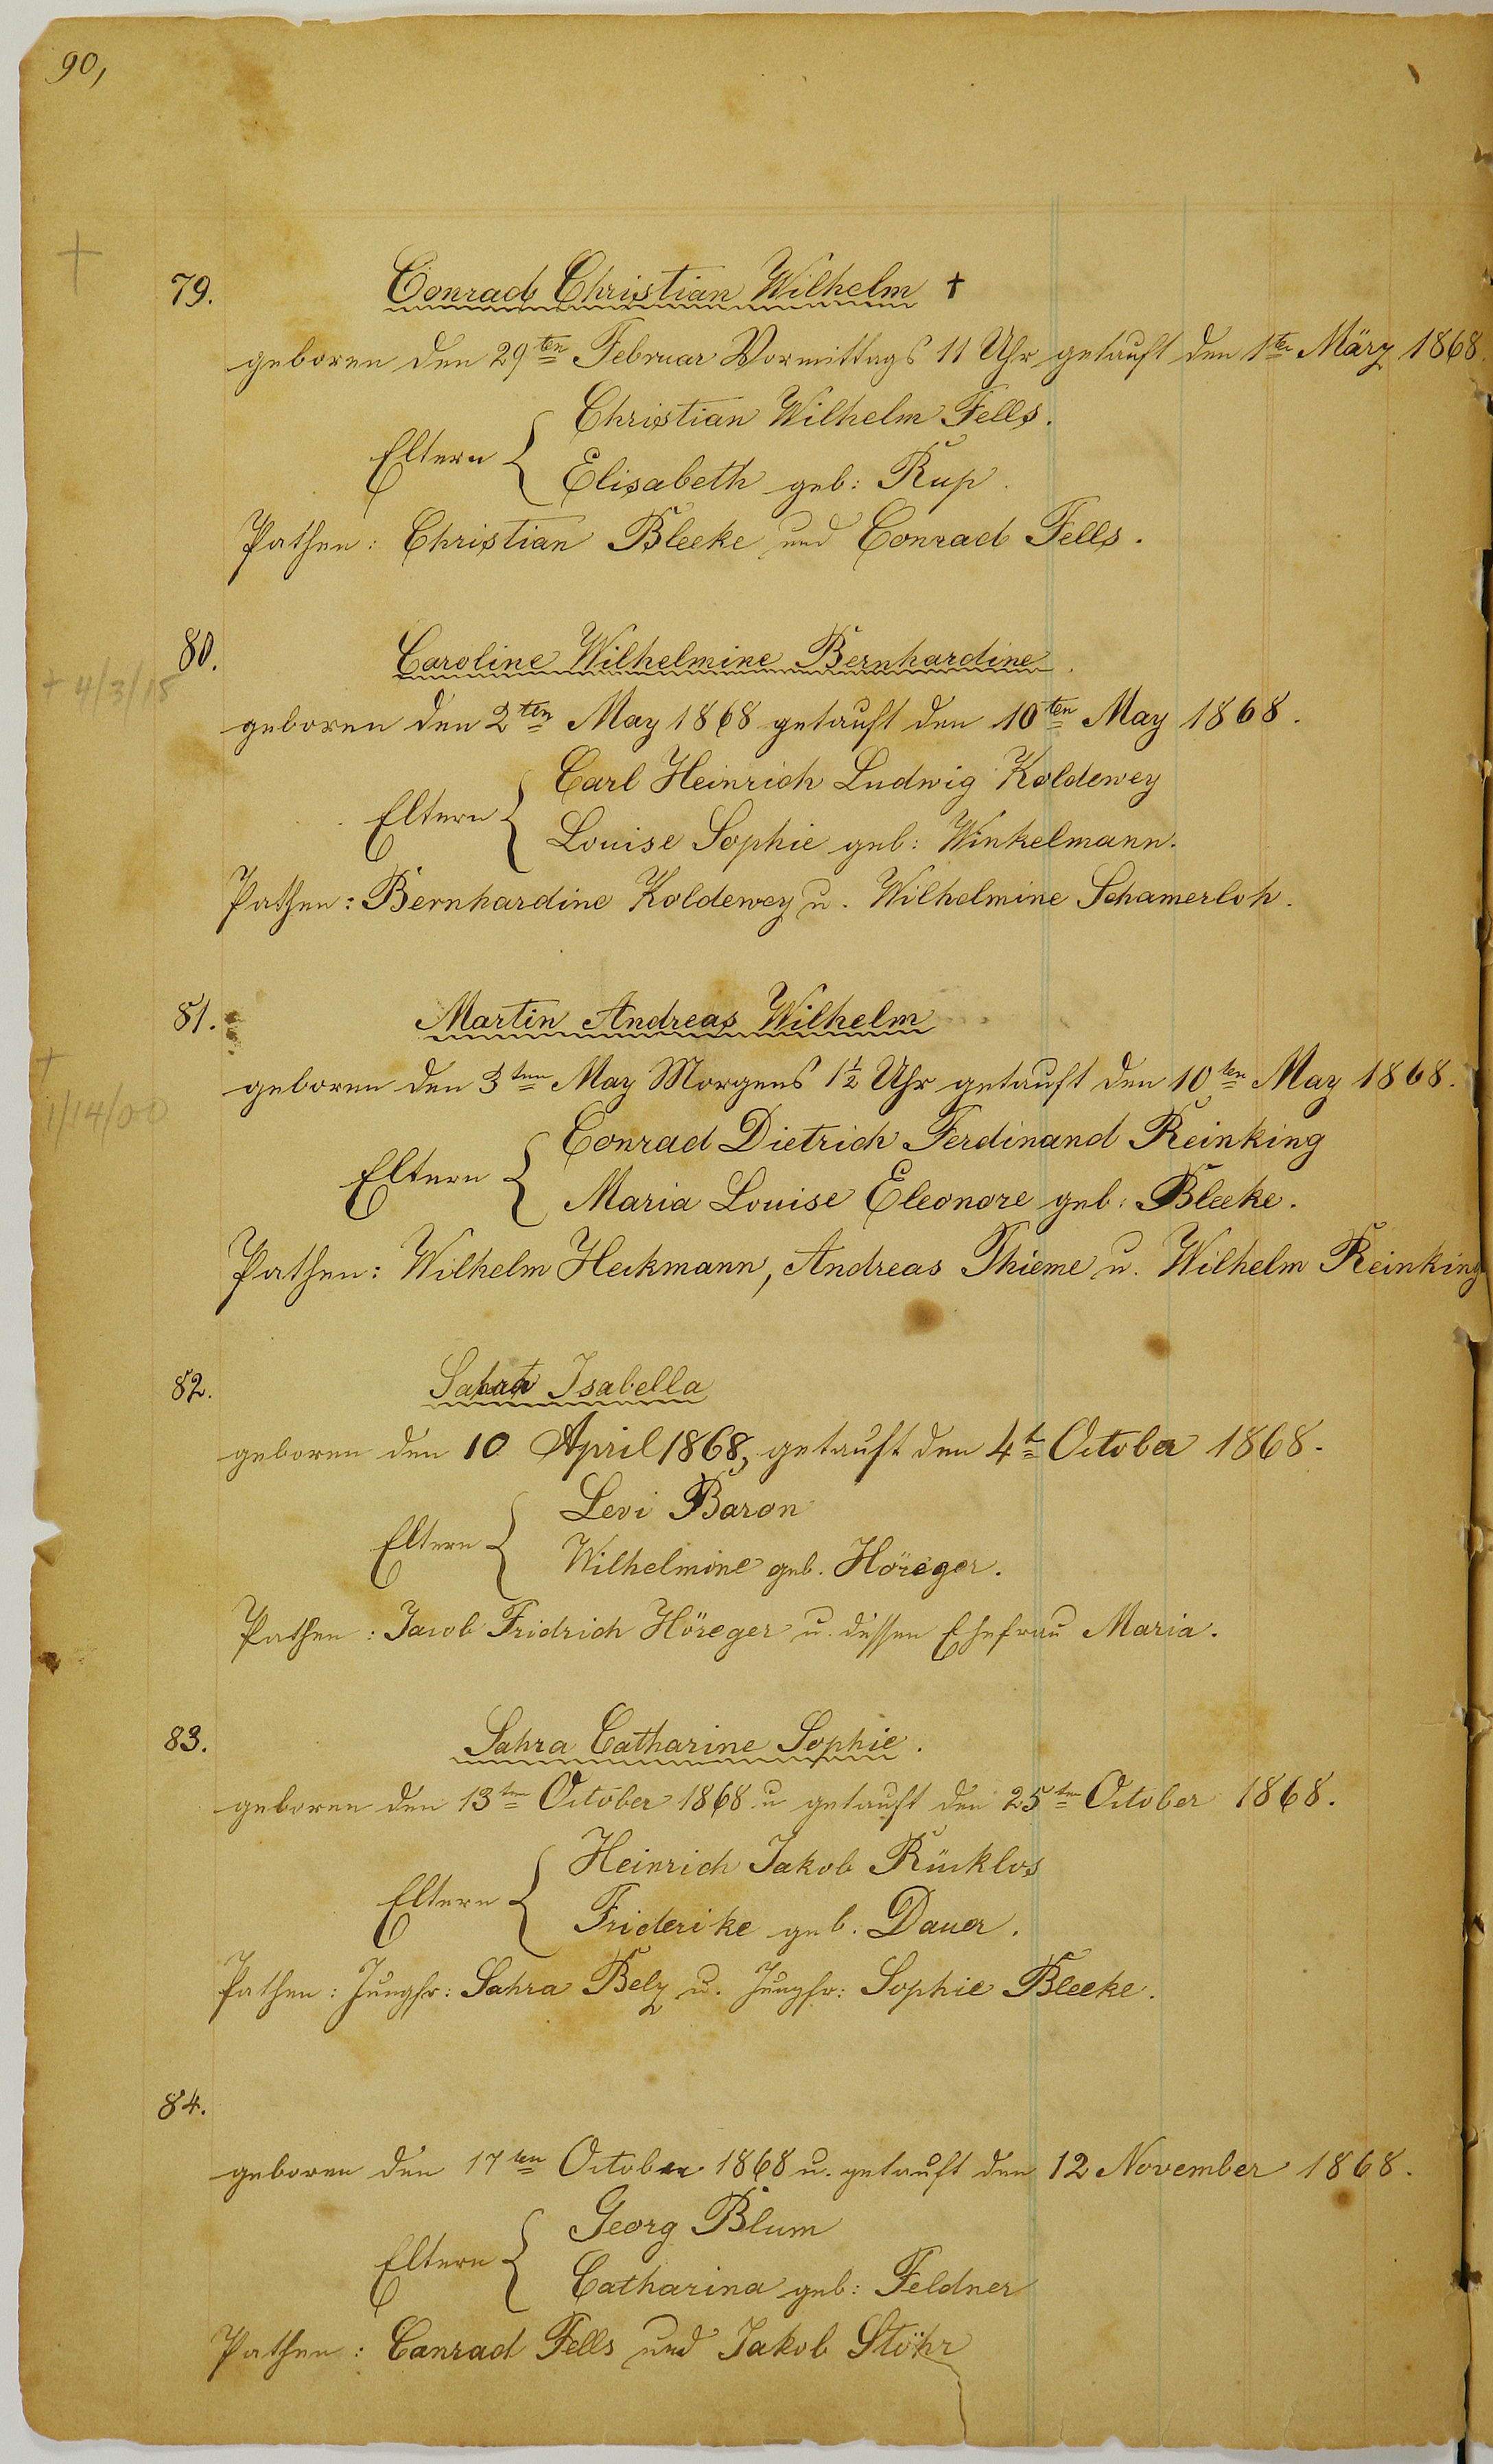 90,
79. Conrad Christian Wilhelm †
geboren den 29ten Februar Vormittags 11 Uhr getauft den 1ten März 1868.
Christian Wilhelm Fells.
Eltern {
Elisabeth geb: Rup.
Pathen: Christian Bleeke und Conrad Fells.
80. Caroline Wilhelmine Bernhardine.
+ 4/3/18
geboren den 2ten May 1868 getauft den 10ten May 1868.
Carl Heinrich Ludwig Koldewey
Eltern {
Louise Sophie geb: Winkelmann.
Pathen: Bernhardine Koldewey u. Wilhelmine Schamerloh.
81. Martin Andreas Wilhelm
+
geboren den 3ten May Morgens 1½ Uhr getauft den 10ten May 1868.
1/14/00
Conrad Dietrich Ferdinand Reinking
Eltern {
Maria Louise Eleonore geb: Bleeke.
Pathen: Wilhelm Heckmann, Andreas Thieme u. Wilhelm Reinking
82. Isabella
geboren den 10 April 1868, getauft den 4t October 1868.
Levi Baron
Eltern {
Wilhelmine geb. Höreger.
Pathen: Jacob Fridrich Höreger u. dessen Ehefrau Maria.
83. Sahra Catharine Sophie.
geboren den 13ten October 1868 u getauft den 25ten October 1868.
Heinrich Jakob Rücklos
Eltern {
Friderike geb. Dauer.
Pathen: Jungfr: Sahra Belz u. Jungfr: Sophie Bleeke.
84.
geboren den 17ten October 1868 u. getauft den 12 November 1868.
Georg Blum
Eltern {
Catharina geb: Feldner
Pathen: Conrad Fells und Jakob Stöhr